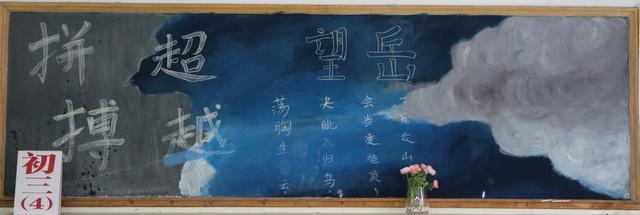 拼搏
超越
望岳
荡胸生 云,
决眦入归鸟。
会当凌绝顶,
众山
初三
(4)